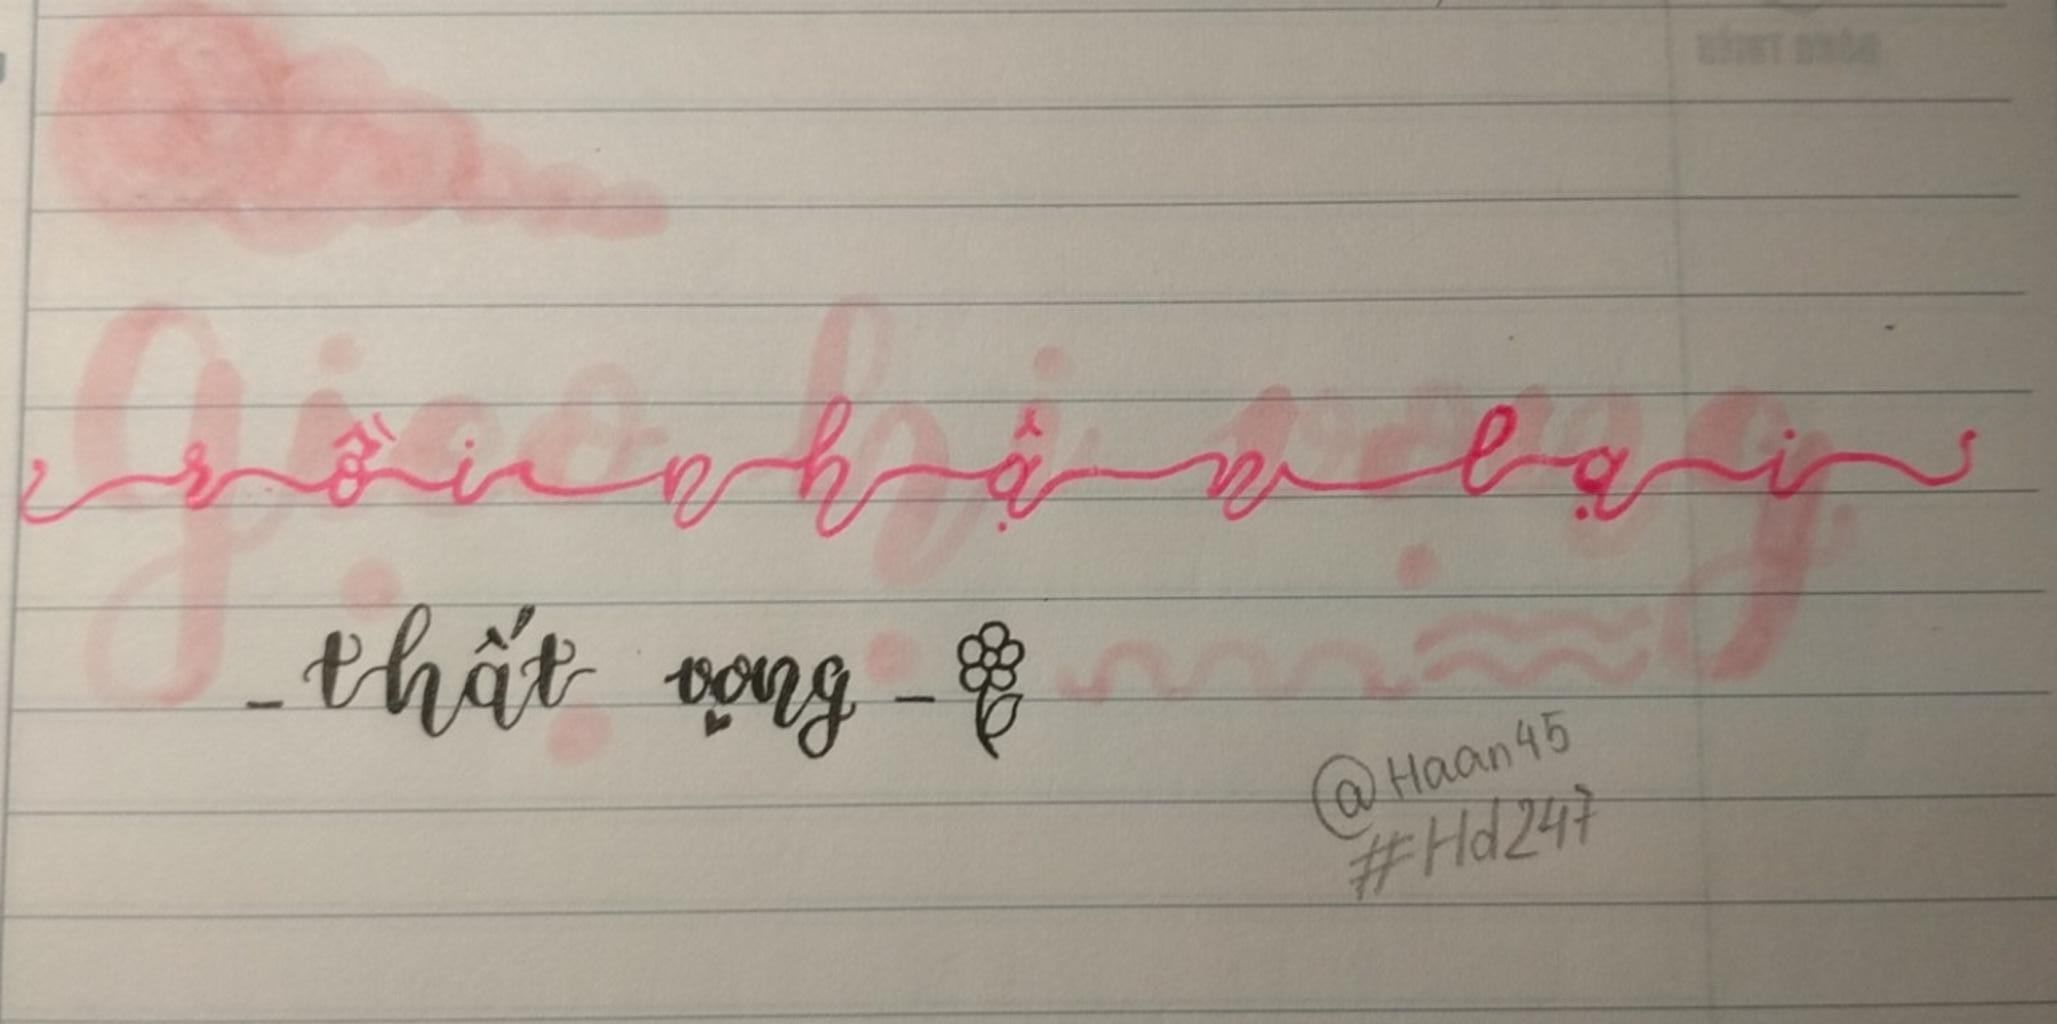 gieo hi vọng
rồi nhận lại
- thất vọng -
@Haan45
#Hd247